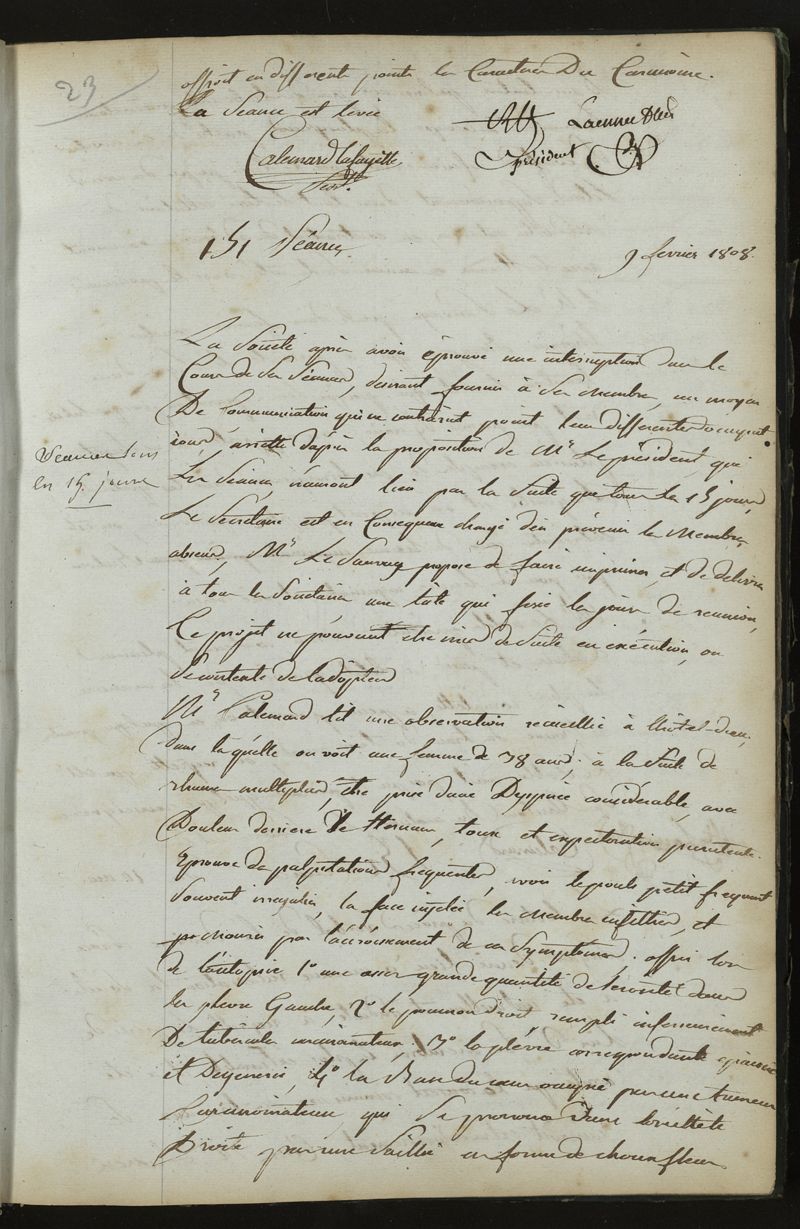 23
offroit en différents points les Caractères Du Carcinôme.
La Séance est levée
Laennec D.M.
président
Calemard Lafayette
Secr.
151 Séance.
9 fevrier 1808.
La Société après avoir éprouvé une interruption dans le
Cours de ses Séances, desirant fournir à ses membres, un moyen
De Communication qui ne contrariat point leurs differentes occupat
ions, arrette d'après la proposition de Mr Le président, que
Les Séances n'auront lieu par la Suite que tous les 15 jours,
Séances tous
les 15. jours
Le Secrétaire est en Consequence chargé d'en prévenir les Membres
absens, Mr Le Sauvage propose de faire imprimer, et de delivrer
à tous les Sociétaires une liste qui fixe les jours de reunion,
Ce projet ne pouvant être mis de Suite en exécution, on
se contente de l'adopter
Mr Calemard lit une observation recueillie à l'hôtel-dieu,
dans laquelle on voit une femme de 38 ans, à la Suite de
rhumes multipliés, être prise d'une Dyspnée considérable, avec
Douleur derriere Le Sternum, toux et expectoration purulente.
éprouver des palpitations frequentes, avoir le pouls petit frequent
Souvent irregulier, la face injectée les membres infiltrés, et
mourir par l'accroissement de ces Symptomes. offrir lors
de l'autopsie 1º une assez grande quantité de Serosité dans
les plevre Gauche, 2º le poumon droit, rempli inferieurement
De tubercules carcinomateux. 3º la plévre correspondante epaissie
et Degenerée, 4º la Base du coeur occupée par une tumeur
Carcinomateuse, qui Se prononce dans l'oreillette
Droite par une Saillie en forme de choux fleur